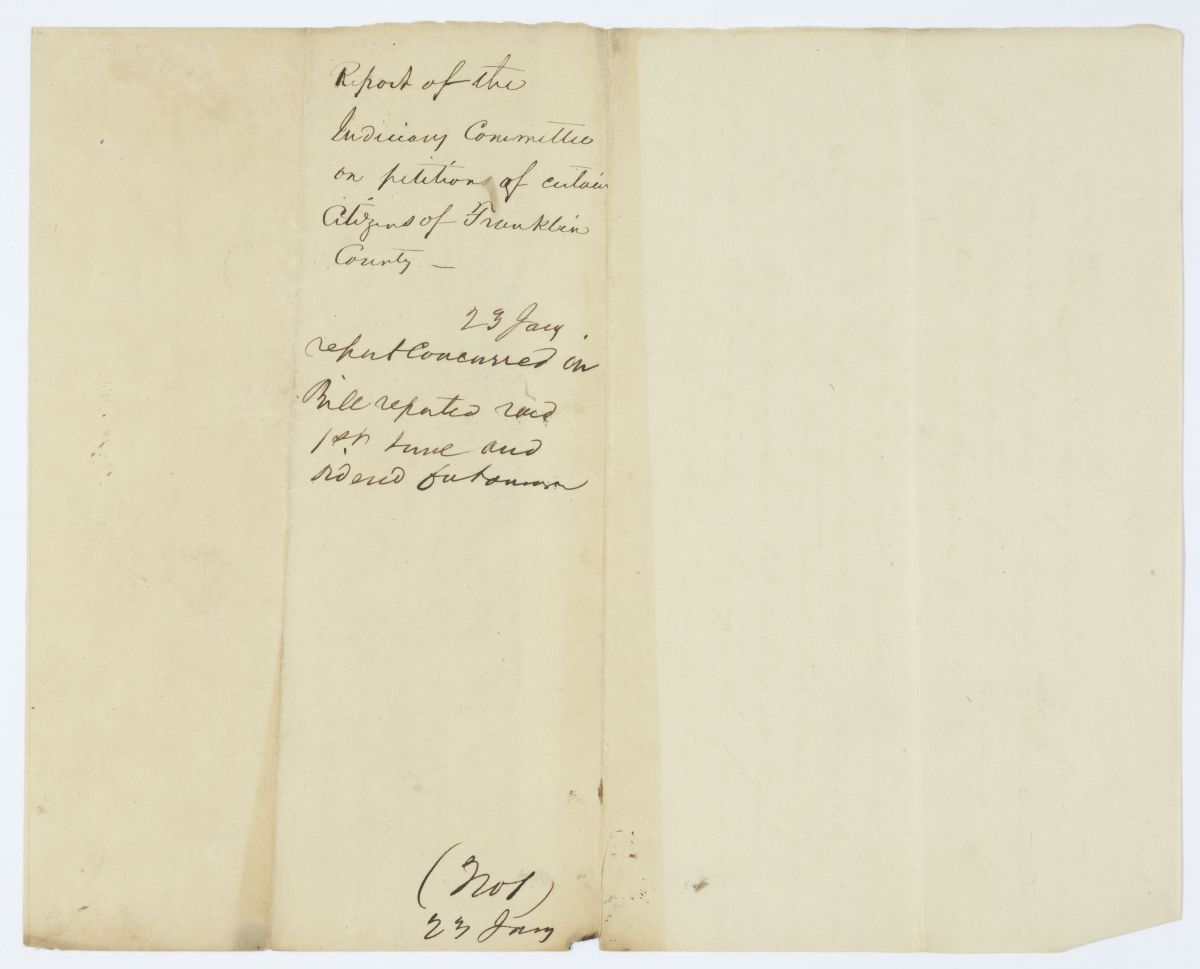 Report of the
Judiciary Committee
on petitions of certain
Citizens of Franklin
County —
23 Jany
report Concurred in
Bill reported read
1st time and
ordered for tomorrow
(Not)
23 Jany